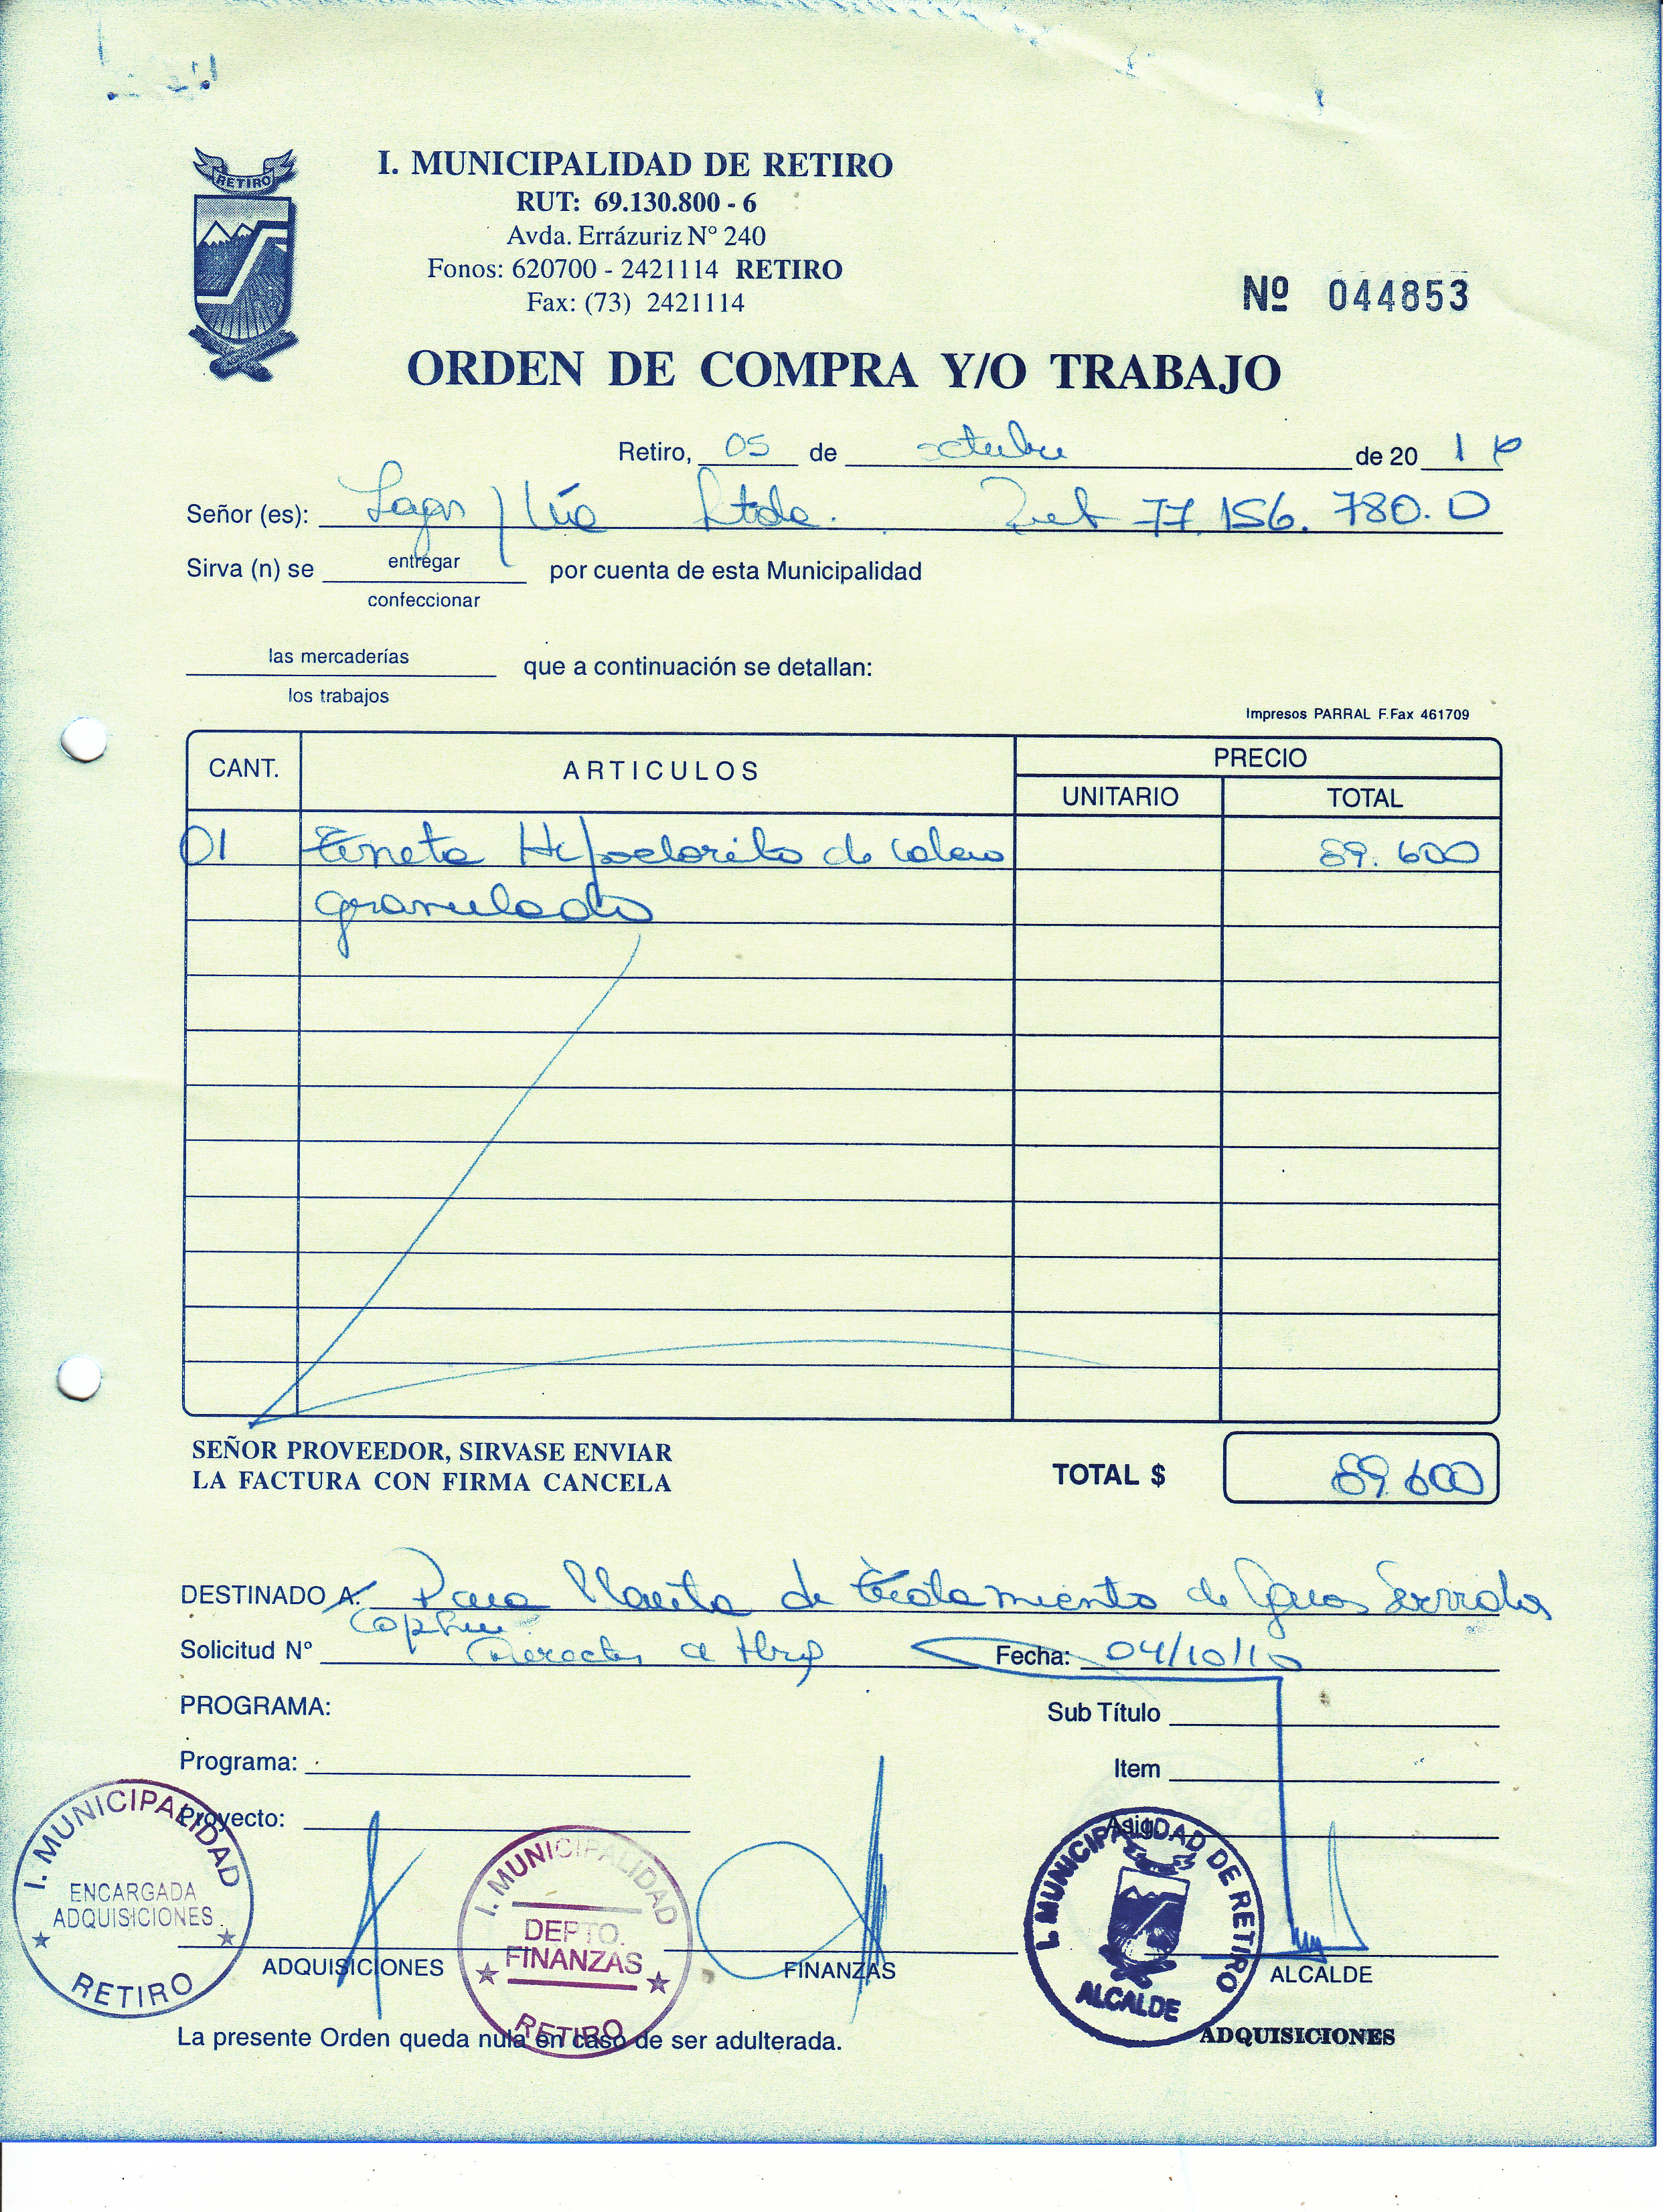 RETIRO
I. MUNICIPALIDAD DE RETIRO
RUT: 69.130.800 - 6
Avda. Errázuriz N° 240
Fonos: 620700 - 2421114 RETIRO
Fax: (73) 2421114
Nº 044853
ORDEN DE COMPRA Y/O TRABAJO
Retiro, 05 de octubre de 20 1
Señor (es): Ltda. Rut 77.156.780.0
Sirva (n) se entregar por cuenta de esta Municipalidad
confeccionar
las mercaderías que a continuación se detallan:
los trabajos
Impresos PARRAL F.Fax 461709
CANT. ARTICULOS PRECIO
UNITARIO TOTAL
01 Tineta Hipoclorito de calcio 89.600
granulado
SEÑOR PROVEEDOR, SIRVASE ENVIAR
LA FACTURA CON FIRMA CANCELA
TOTAL $ 89.600
DESTINADO A: Para Planta de Tratamiento de Aguas Servidas
Copihue
Solicitud N° Director a Fecha: 04/10/1
PROGRAMA: Sub Título
Programa: Item
Proyecto: Asig
I. MUNICIPALIDAD
ENCARGADA
ADQUISICIONES
RETIRO
I. MUNICIPALIDAD
DEPTO.
FINANZAS
RETIRO
I. MUNICIPALIDAD DE RETIRO
ALCALDE
ADQUISICIONES FINANZAS ALCALDE
La presente Orden queda nula en caso de ser adulterada.
ADQUISICIONES